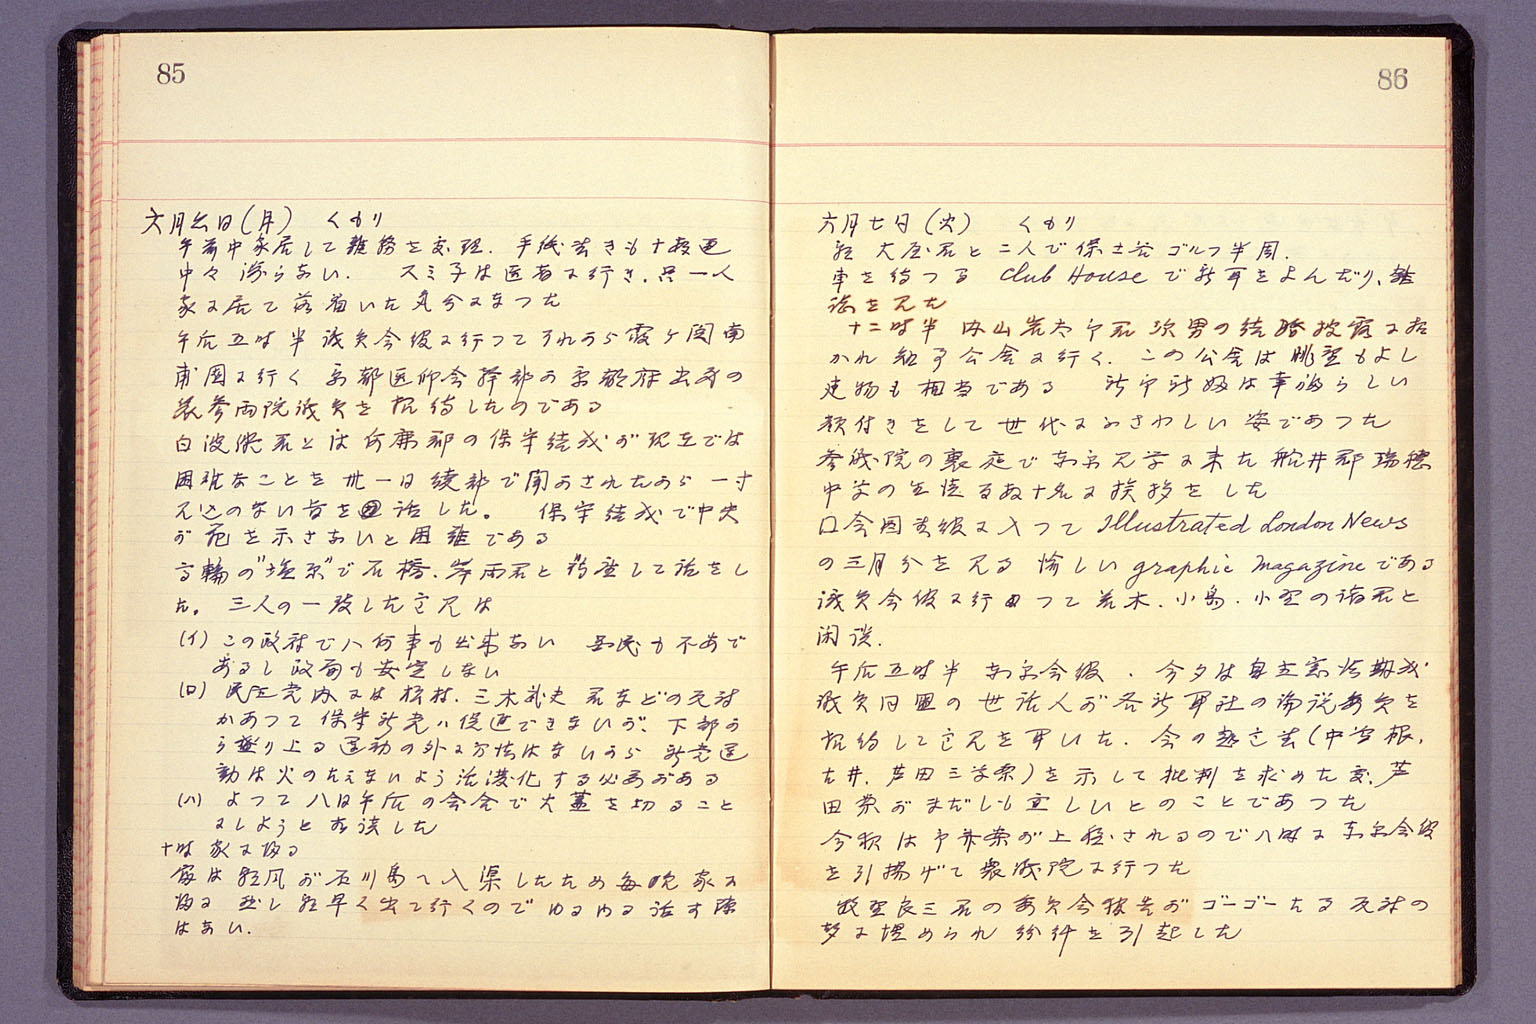 85
六月六日(月) くもり
午前中家居して雑務を処理. 手紙書きも十数通
中々減らない. スミ子は医者に行き. 只一人
家に居て落着いた気分になつた
午后五時半 議員会館に行つてそれから霞ヶ関南
甫園に行く 京都医師会幹部が京都府出身の
衆参両院議員を招待したのである
白波瀬君とは何鹿郡の保守結成が現在では
困難なことを 廿一日綾部で聞かされたから 一寸
見込のない旨を話した。 保守結成で中央
が範を示さないと困難である
高輪の"塩原"で石橋. 岸両君と鼎座して話をし
た。 三人の一致した意見は
(イ) この政府でハ何事も出来ない 国民も不安で
あるし政局も安定しない
(ロ) 民主党内には松村. 三木武吉君などの反対
があつて保守新党ハ促進できないが、下部か
ら盛り上る運動の外に方法はないから 新党運
動は火のたえないよう活溌化する必要がある
(ハ) よつて八日午后の会合で火蓋を切ること
にしようと相談した
十時家に帰る
家は 風が石川島へ入渠したため毎晩家に
帰る 然し朝早く出て行くのでゆるゆる話す隙
はない.
86
六月七日(火) くもり
朝 大原君と二人で保土谷ゴルフ半周.
車を待つ間 Club Houseで新聞をよんだり、雑
誌を見た
十二時半 内山岩太郎君次男の結婚披露に招
かれ 紅子会舎に行く. この会舎は眺望もよし
建物も相当である 新郎新婦は幸福らしい
顔付きをして世代にふさわしい姿であつた
参議院の裏庭で東京見学に来た船井郡瑞穂
中学の生徒百数十名に挨拶をした
国会図書館に入つて Illustrated London News
の三月分を見る 愉しい graphic magazineである
議員会館に行つて荒木. 小島. 小笠の諸君と
閑談.
午后五時半 東京会館. 今夕は自主憲法期成
議員同盟の世話人が各新聞社の論説委員を
招待して意見を聞いた. 会の趣意書(中曽根.
古井. 芦田三氏案)を示して批判を求めた処. 芦
田案がまだしも宜しいとのことであつた
今夜は予算案が上程されるので八時に東京会館
を引揚げて衆議院に行つた
牧野良三君の委員会報告がゴーゴーたる反対の
声に埋められ紛糾を引起した